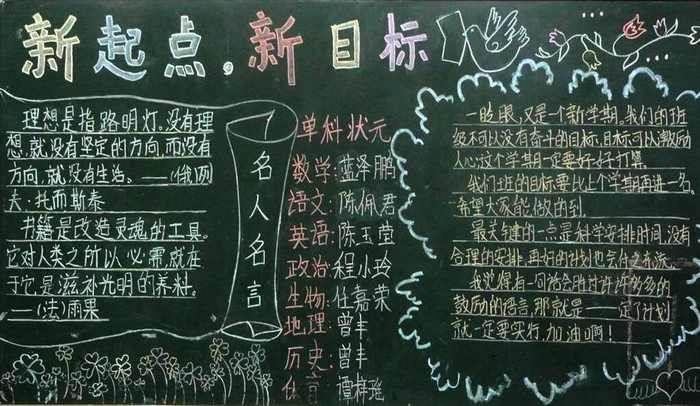 新起点,新目标
理想是指路明灯。没有理
想,就没有坚定的方向,而没有
方向,就没有生活。——(俄)列
夫·托而斯泰
书籍是改造灵魂的工具。
它对人类之所以必需,就在
于它是滋补光明的养料。
——(法)雨果
名人名言
单科状元
数学:蓝泽鹏
语文:陈佩君
英语:陈玉莹
政治:程小玲
生物:任嘉荣
地理:曾丰
历史:曾丰
体育:谭梓瑶
一眨眼,又是一个新学期,我们的班
级不可以没有奋斗的目标,目标可以激励
人心,这个学期一定要好好打算。
我们班的目标要比上个学期再进一名,
希望大家能做的到。
最关键的一点是科学安排时间,没有
合理的安排,再好的计划也会付之东流。
我觉得有一句话会胜过许许多多的
鼓励的语言,那就是——定了计划
就一定要实行,加油啊!